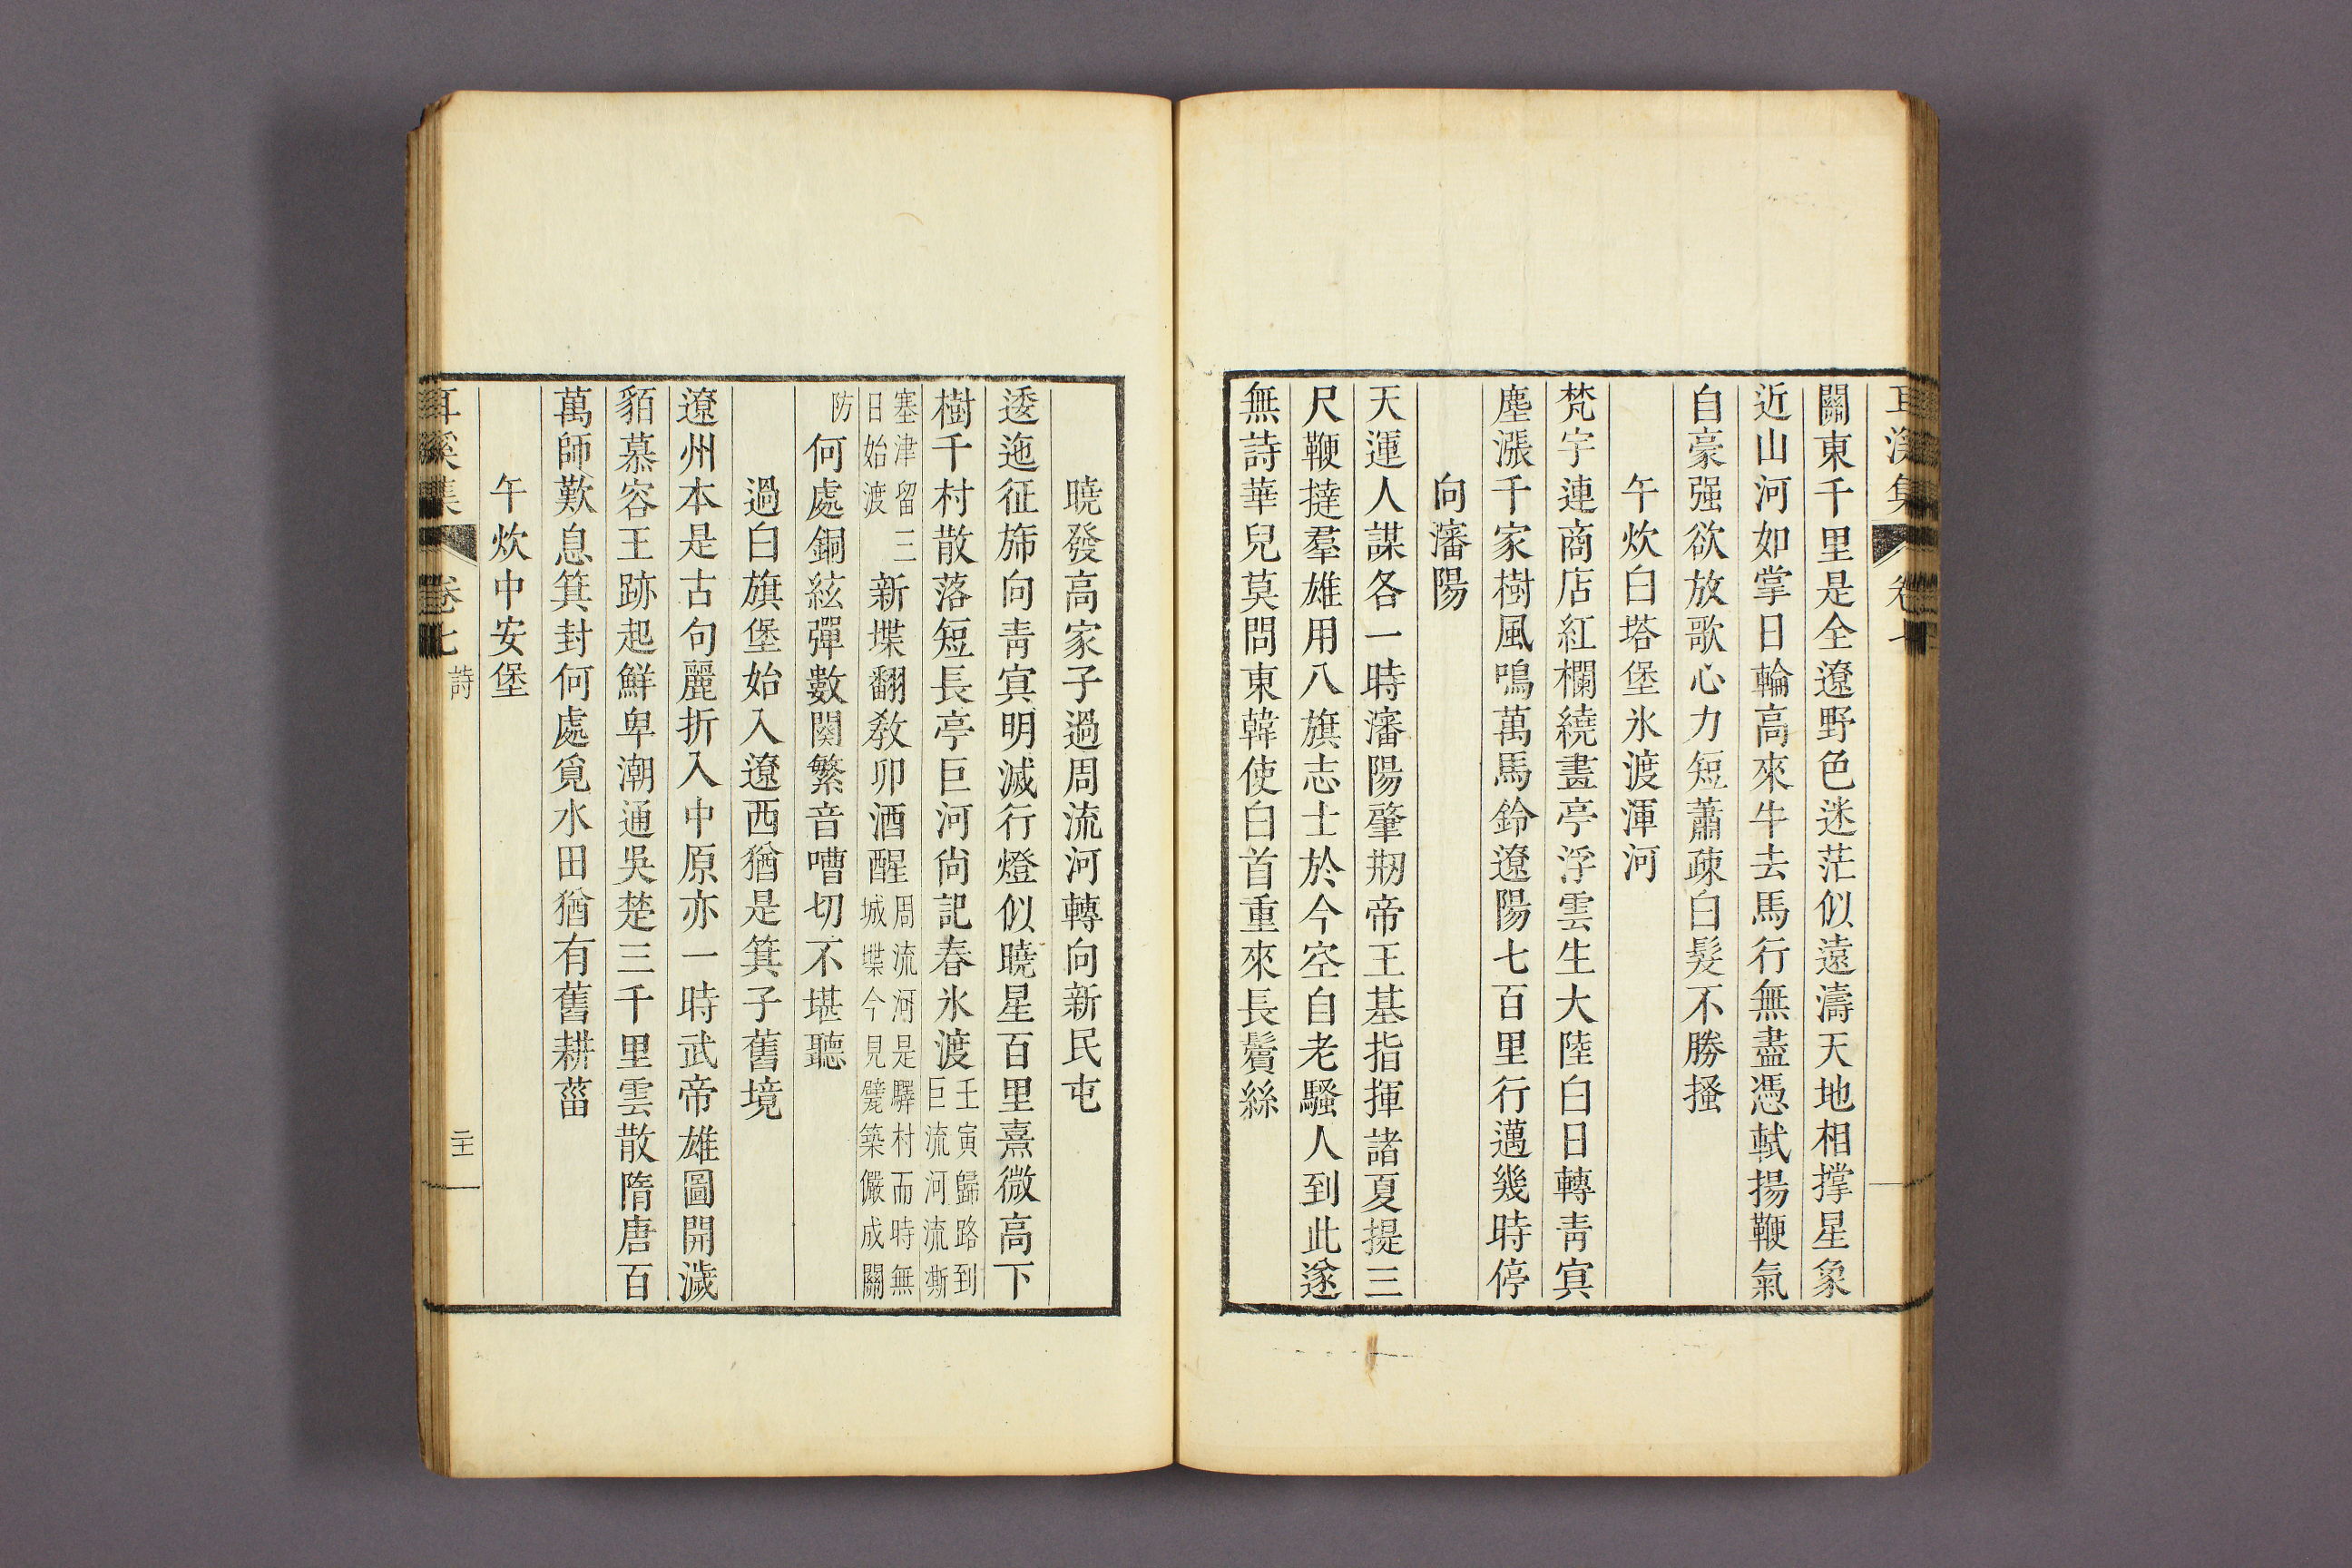 耳溪集 卷七
關東千里是全遼野色迷茫似遠濤天地相撐星象
近山河如掌日輪高來牛去馬行無盡憑軾揚鞭氣
自豪强欲放歌心力短蕭疎白髮不勝搔
午炊白塔堡氷渡渾河
梵宇連商店紅欄繞畫亭浮雲生大陸白日轉靑寘
塵漲千家樹風鳴萬馬鈴遼陽七百里行邁幾時停
向瀋陽
天運人謀各一時瀋陽肇刱帝王基指揮諸夏提三
尺鞭撻羣雄用八旗志士於今空自老騷人到此遂
無詩華兒莫問東韓使白首重來長鬢絲
曉發高家子過周流河轉向新民屯
逶迤征斾向靑寘明滅行燈似曉星百里熹微高下
樹千村散落短長亭巨河尙記春氷渡壬寅歸路到巨流河流澌
塞津留三日始渡新堞翻敎卯酒醒周流河是驛村而時無城堞今見甓築儼成關
防何處銅絃彈數闋繁音嘈切不堪聽
過白旗堡始入遼西猶是箕子舊境
遼州本是古句麗折入中原亦一時武帝雄圖開濊
貊慕容王跡起鮮卑潮通吳楚三千里雲散隋唐百
萬師歎息箕封何處覓水田猶有舊耕菑
午炊中安堡
耳溪集 卷七 詩 二十一